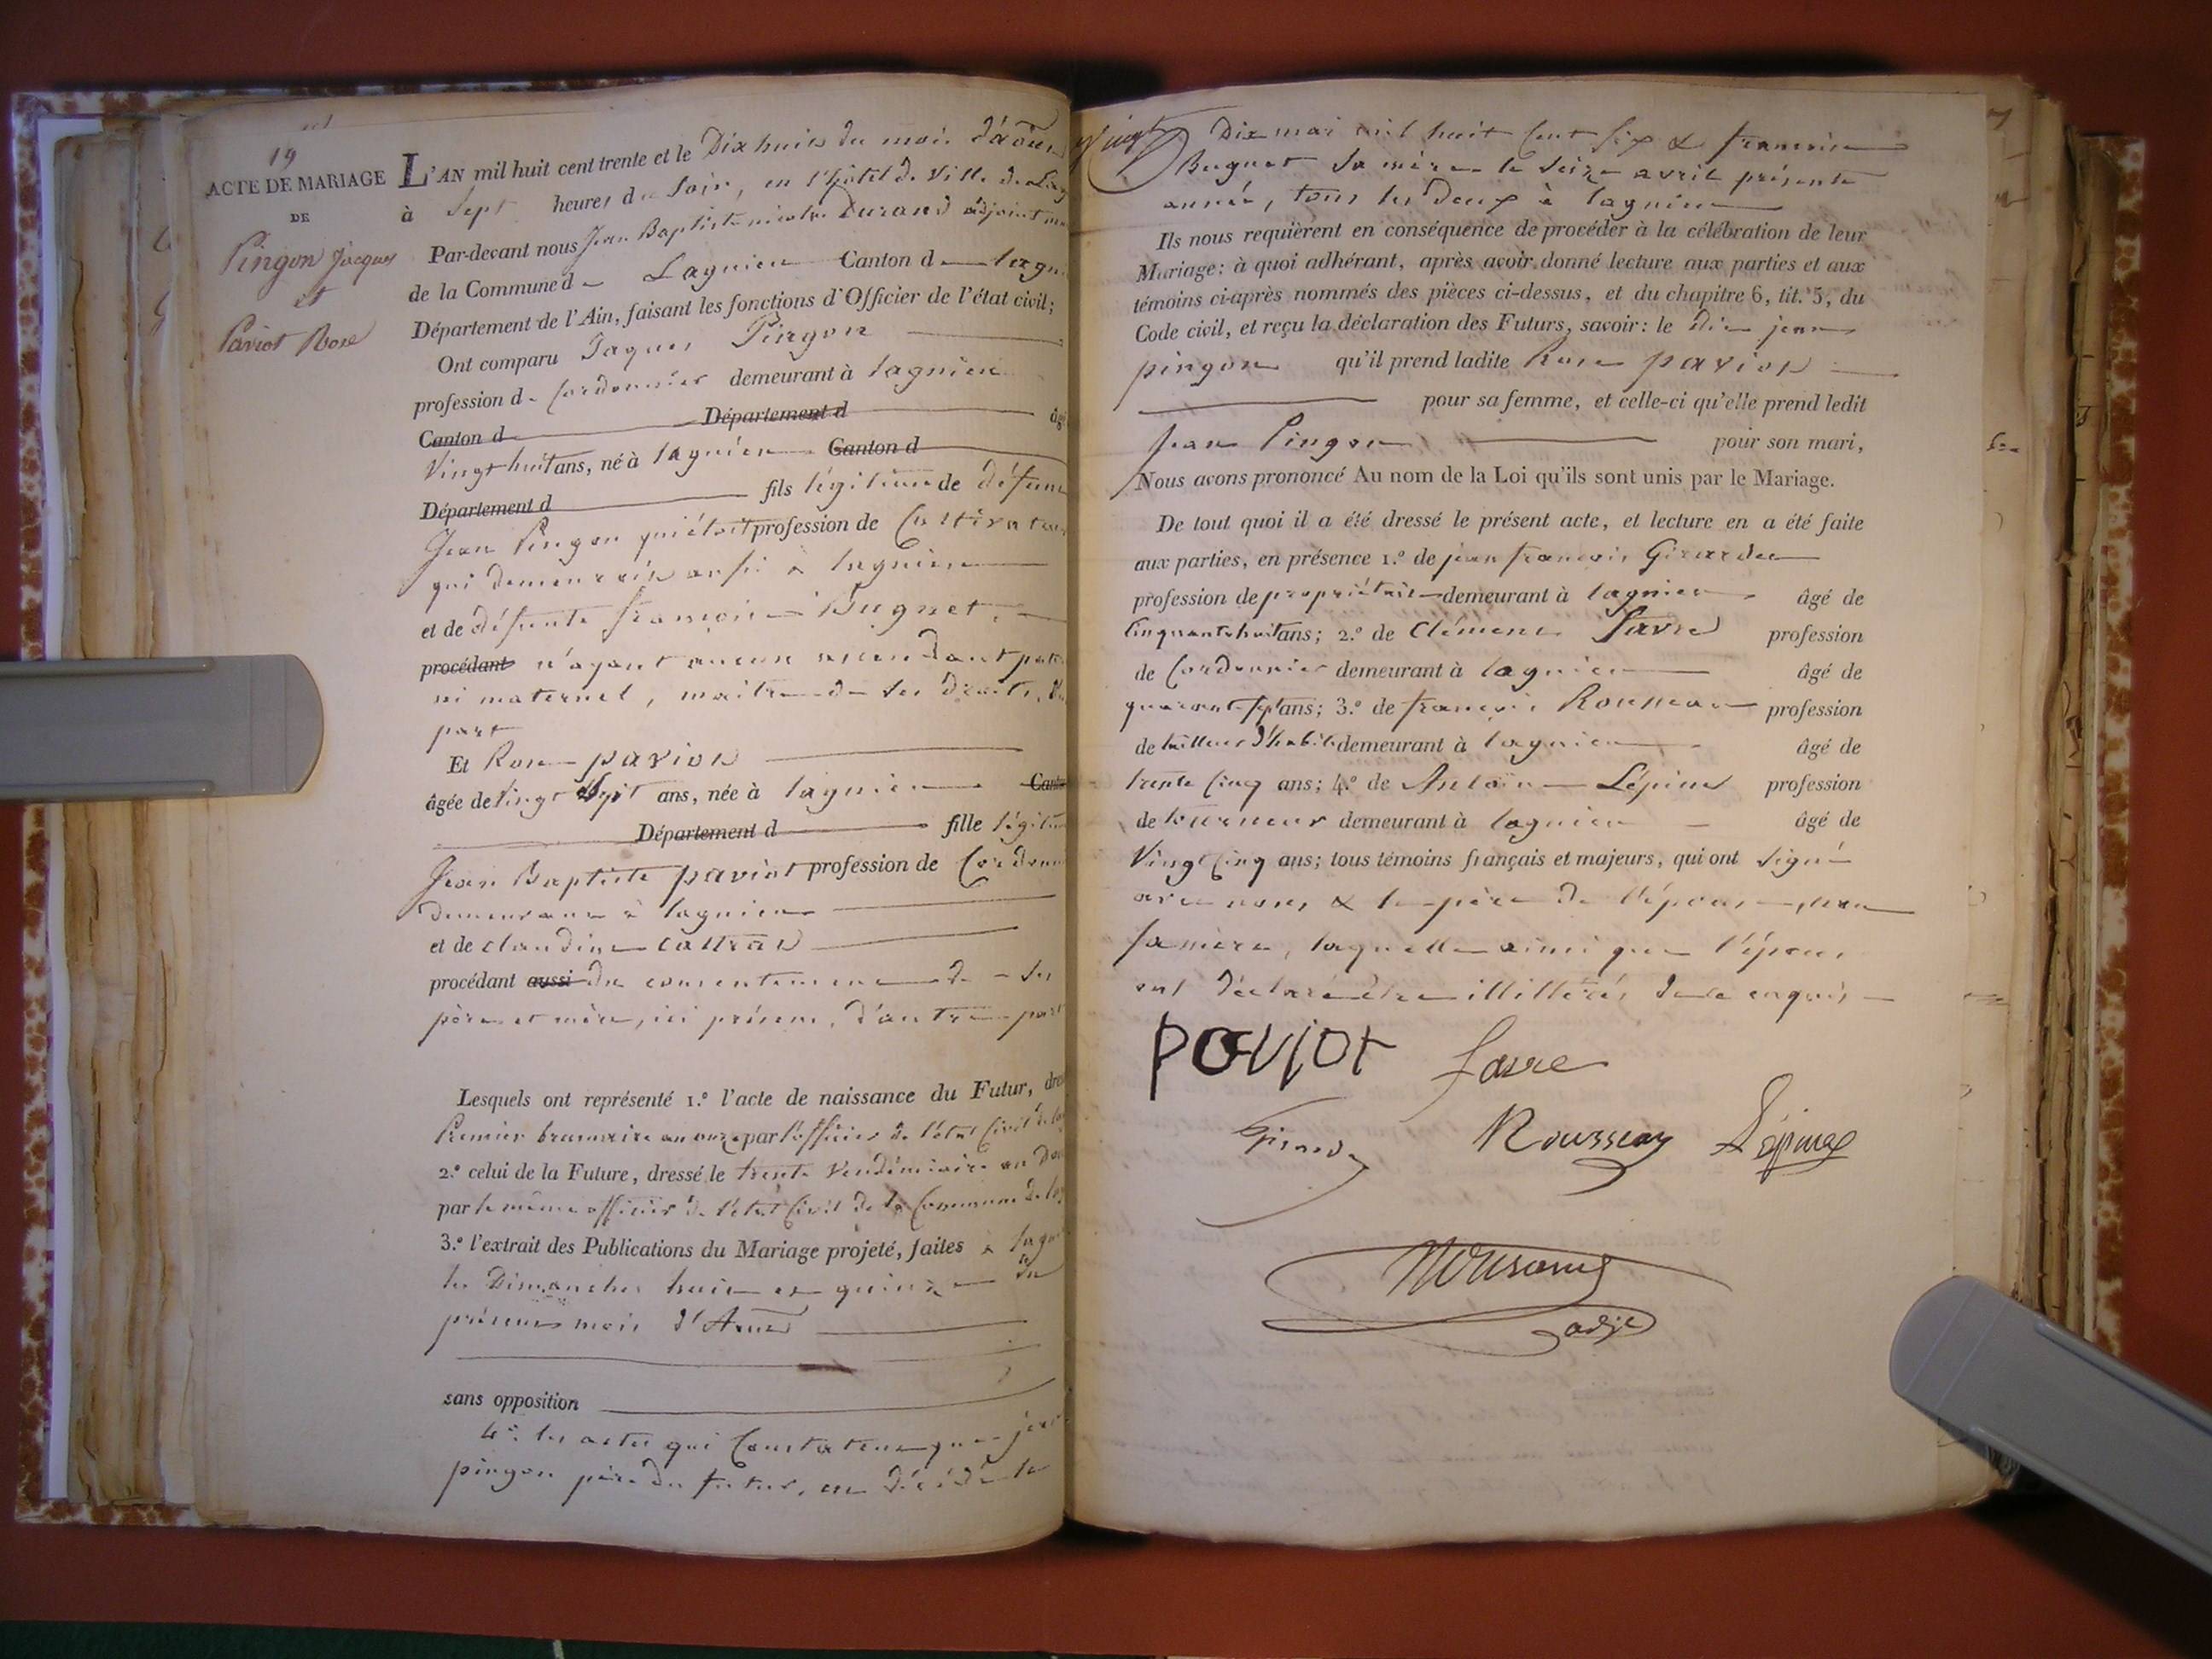 19
ACTE DE MARIAGE
DE
Pingon Jacques
et
Paviot Rose
L'AN mil huit cent trente et le Dix huit du mois d'août
à Sept heures du Soir, en l'hôtel de Ville de Lag
Par-devant nous Jean Baptiste nicolas Durand adjoint
de la Commune d Lagnieu Canton d lagn
Département de l'Ain, faisant les fonctions d'Officier de l'état civil;
Ont comparu Jaques Pingon
profession d Cordonnier demeurant à lagnieu
Canton d Département d âg
Vingt huit ans, né à lagnieu Canton d
Département d fils légitime de défunt
Jean Pingon qui étoit profession de Cultivateur
qui demeurait aussi à lagnieu
et de défunte françoise Bugnet
procédant n'ayant aucun ascendant pat
ni maternel, maitre de ses droits, d'u
part
Et Rose paviot
âgée de Vingt Sept ans, née à lagnieu Cant
Département d fille légitim
Jean Baptiste paviot profession de Cordonn
demeurant à lagnieu
et de claudine
procédant aussi du consentement de ses
père et mère, ici présens, d'autre part
Lesquels ont représenté 1.º l'acte de naissance du Futur, dre
Premier brumaire an onze par l'officier de l'état Civil de la
2.º celui de la Future, dressé le trente Vendémiaire an Dou
par le même officier de l'état Civil de la Commune de lag
3.º l'extrait des Publications du Mariage projeté, faites à lagn
les Dimanches huit et quinze du
présent mois d'Aout
sans opposition
4º: les actes qui Constatent que jean
pingon père du futur, est décédé le
Vingt Dix mai mil huit Cent Six & françoise
Bugnet Sa mère le Seize avril présente
année, tous les deux à lagnieu
Ils nous requièrent en conséquence de procéder à la célébration de leur
Mariage: à quoi adhérant, après avoir donné lecture aux parties et aux
témoins ci-après nommés des pièces ci-dessus, et du chapitre 6, tit. 5, du
Code civil, et reçu la déclaration des Futurs, savoir: le dit jean
pingon qu'il prend ladite Rose paviot
pour sa femme, et celle-ci qu'elle prend ledit
Jean Pingon pour son mari,
Nous avons prononcé Au nom de la Loi qu'ils sont unis par le Mariage.
De tout quoi il a été dressé le présent acte, et lecture en a été faite
aux parties, en présence 1.º de jean françois Girardet
profession de propriétaire demeurant à lagnieu âgé de
Cinquante huit ans; 2.º de Clément Favre profession
de Cordonnier demeurant à lagnieu âgé de
quarante Sept ans; 3.º de françois Rousseau profession
de tailleur d'habits demeurant à lagnieu âgé de
trente Cinq ans; 4.º de Antoine Lépine profession
de tourneur demeurant à lagnieu âgé de
Vingt Cinq ans; tous témoins français et majeurs, qui ont signé
avec nous & le père de l'épouse, non
sa mère, laquelle ainsi que l'époux
ont déclaré être illitterés de ce enquis
POVIOT favre
Rousseau Lépine
adjt